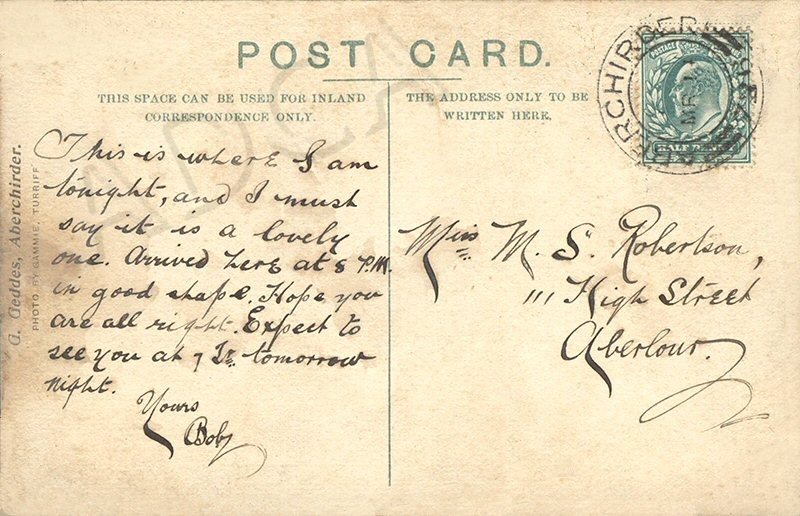 POST CARD.
THIS SPACE CAN BE USED FOR INLAND
CORRESPONDENCE ONLY.
THE ADDRESS ONLY TO BE
WRITTEN HERE.
This is where I am
tonight, and I must
say it is a lovely
one. Arrived here at 8 P.M.
in good shape. Hope you
are all right. Expect to
see you at 7 tomorrow
night.
Yours
Boby
Miss M. S. Robertson,
111 High Street
Aberlour.
G. Geddes, Aberchirder.
PHOTO. BY GAMMIE, TURRIFF
ABERCHIRDER
MR
POSTAGE
HALF PENNY